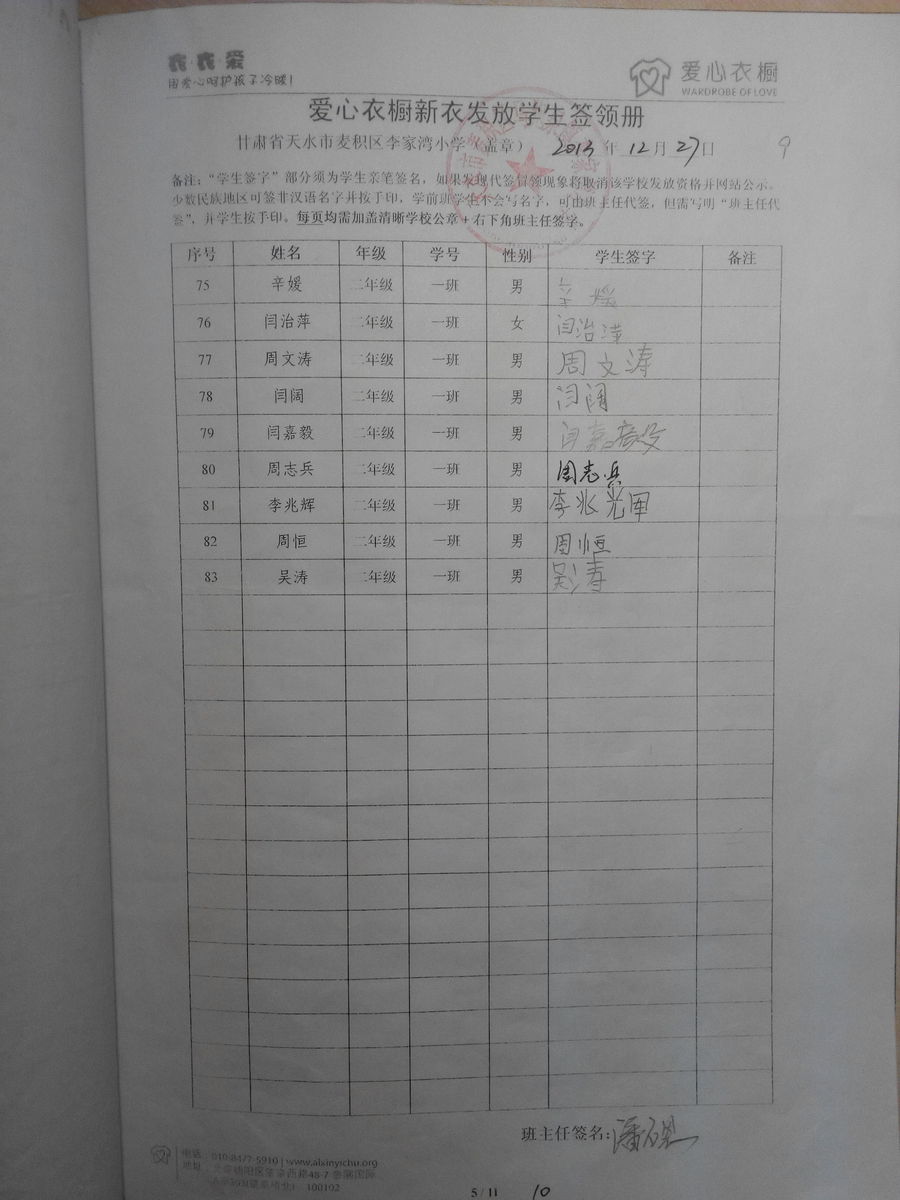 衣·衣·爱
用爱心呵护孩子冷暖!
爱心衣橱
WARDROBE OF LOVE
爱心衣橱新衣发放学生签领册
甘肃省天水市麦积区李家湾小学（盖章） 2013 年 12 月 27 日 9
备注："学生签字"部分须为学生亲笔签名，如果发现代签冒领现象将取消该学校发放资格并网站公示。
少数民族地区可签非汉语名字并按手印，学前班学生不会写名字，可由班主任代签，但需写明"班主任代
签"，并学生按手印。每页均需加盖清晰学校公章+右下角班主任签字。
序号 姓名 年级 学号 性别 学生签字 备注
75 辛媛 二年级 一班 男 辛媛
76 闫治萍 二年级 一班 女 闫治萍
77 周文涛 二年级 一班 男 周文涛
78 闫阔 二年级 一班 男 闫阔
79 闫嘉毅 二年级 一班 男 闫嘉毅
80 周志兵 二年级 一班 男 周志兵
81 李兆辉 二年级 一班 男 李兆辉
82 周恒 二年级 一班 男 周恒
83 吴涛 二年级 一班 男 吴涛
班主任签名:潘
电话：010-8477-5910 | www.aixinyichu.org
地址：北京朝阳区望京西路48-7
100102
5 / 11 10